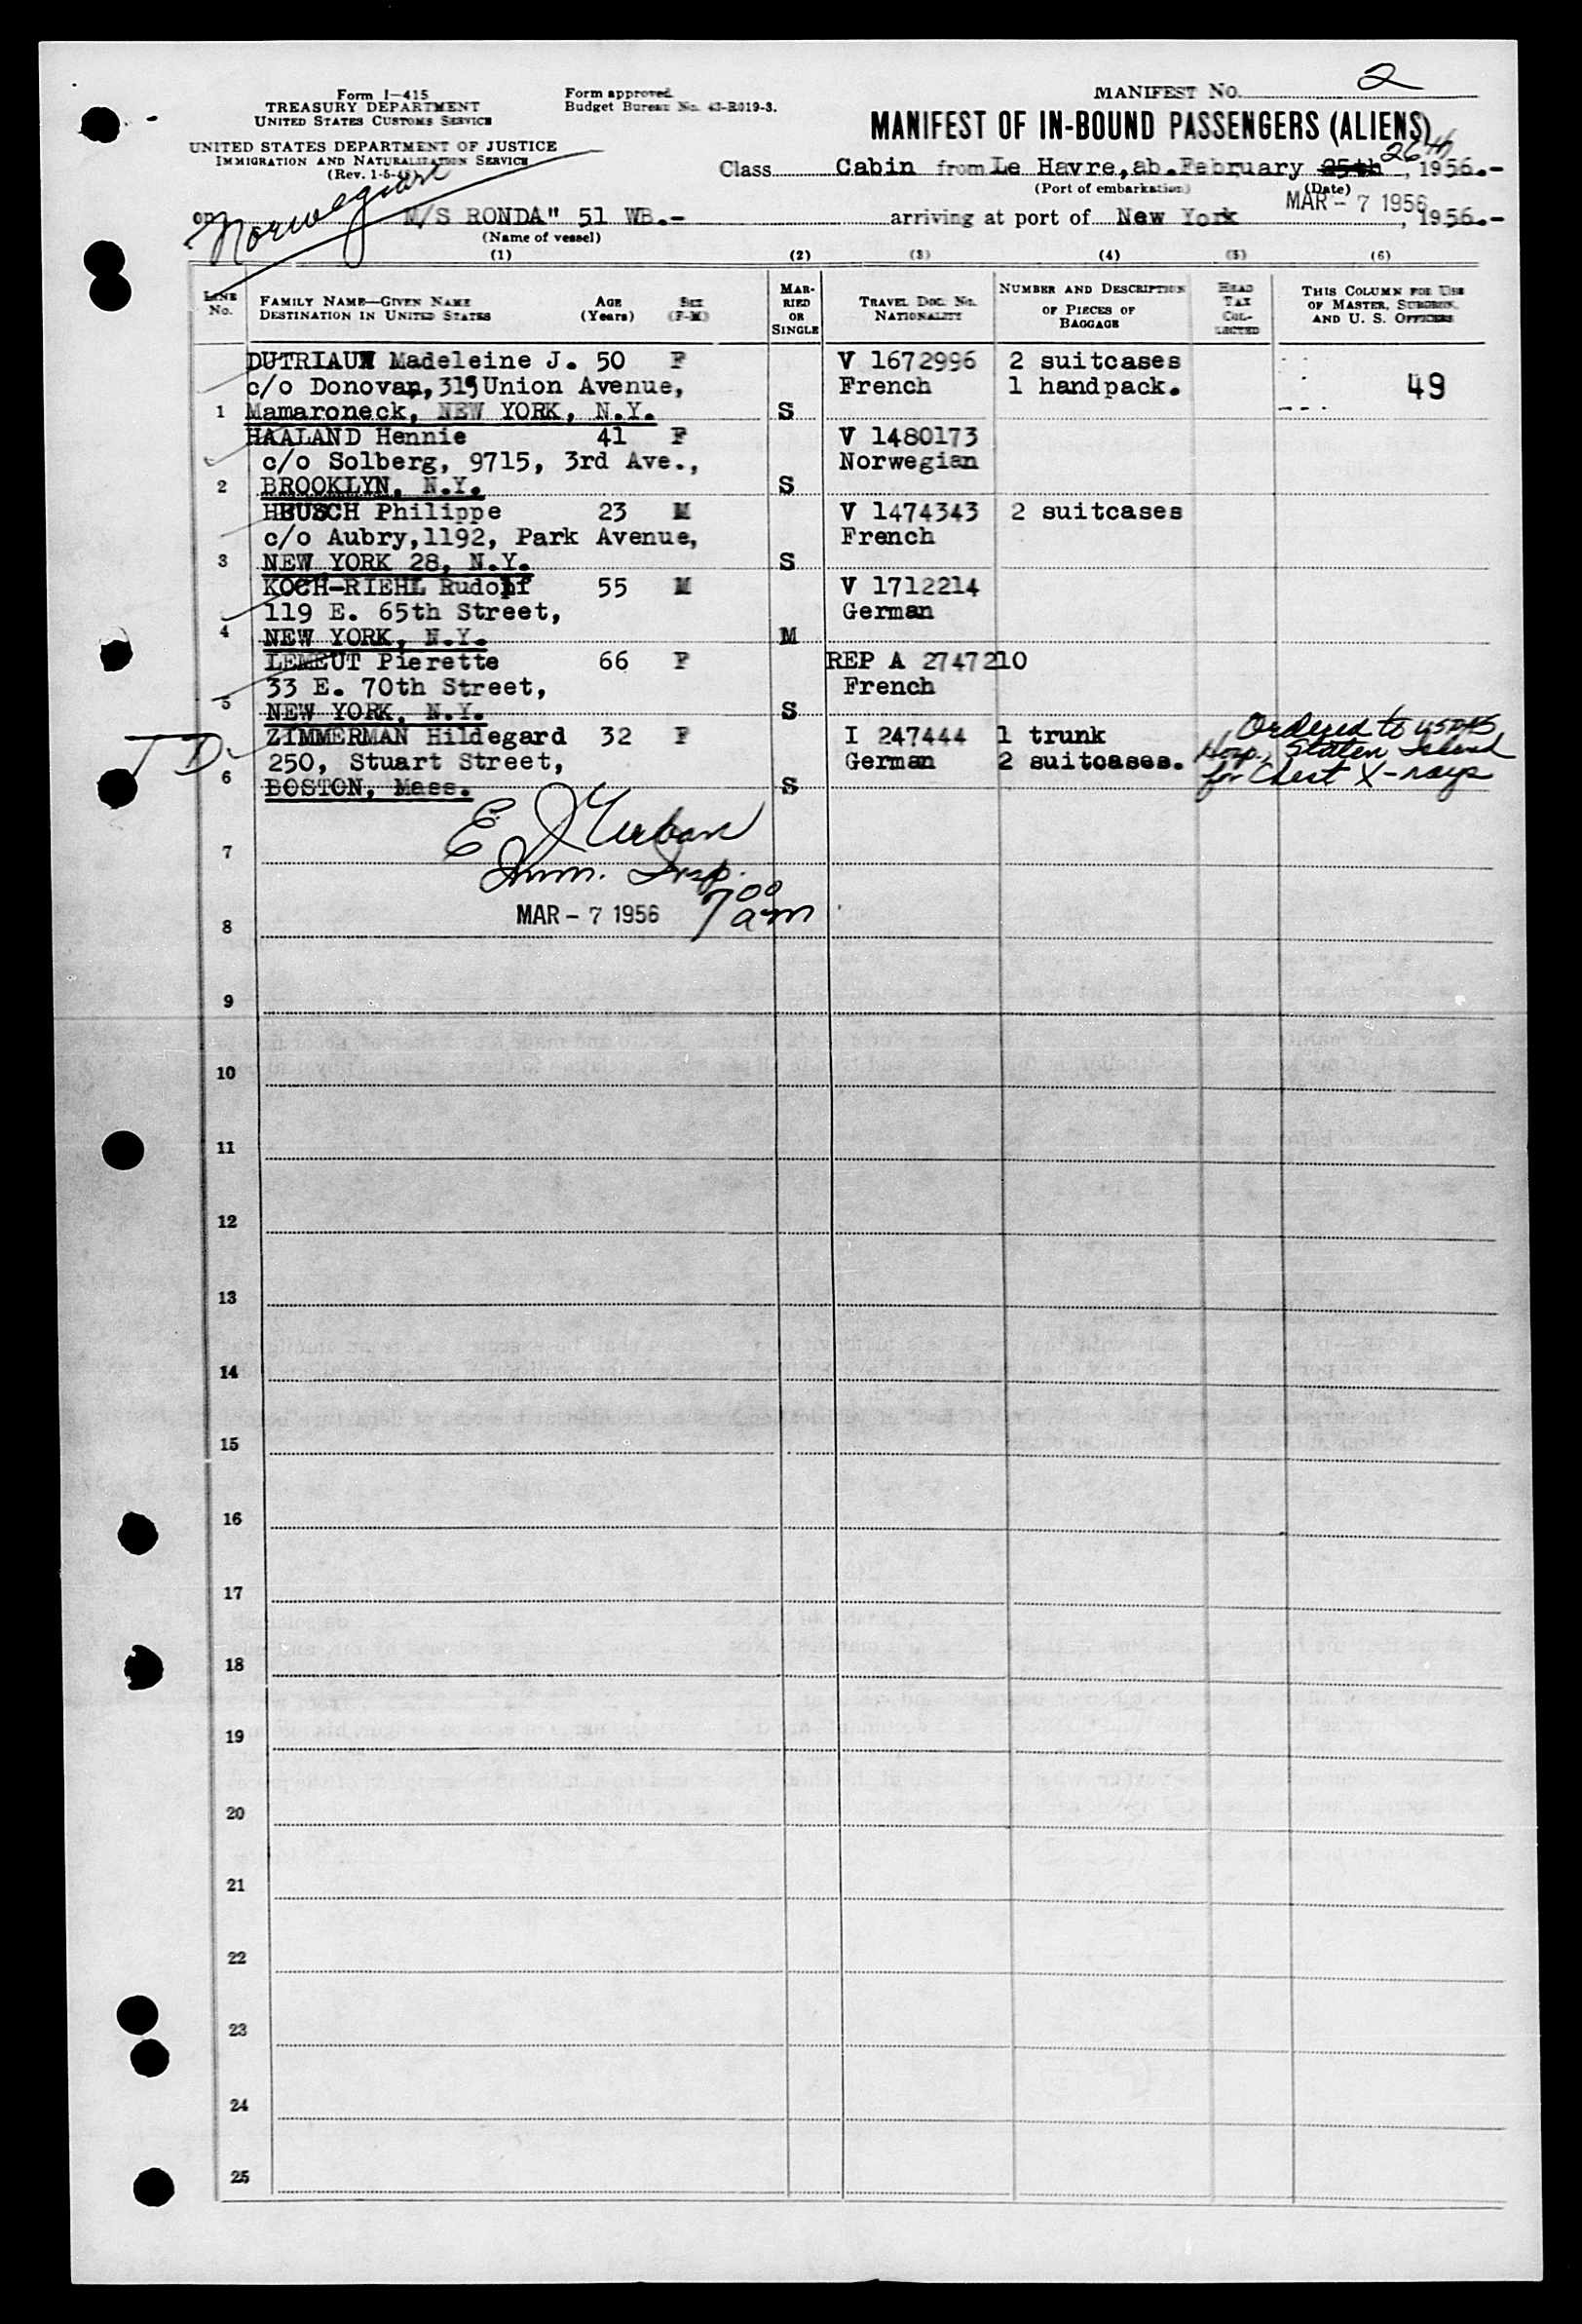 Form I-415
TREASURY DEPARTMENT
UNITED STATES CUSTOMS SERVICE
UNITED STATES DEPARTMENT OF JUSTICE
IMMIGRATION AND NATURALIZATION SERVICE
(Rev. 1-5-48)
Form approved.
Budget Bureau No. 43-R019-3.
MANIFEST NO. 2
MANIFEST OF IN-BOUND PASSENGERS (ALIENS)
Class Cabin from Le Havre, ab. February 25th 26th, 1956.-
(Port of embarkation) (Date)
Norwegian
on M/S RONDA" 51 WB.- arriving at port of New York MAR - 7 1956, 1956.-
(Name of vessel)
(1) (2) (3) (4) (5) (6)
LINE No. FAMILY NAME—GIVEN NAME DESTINATION IN UNITED STATES AGE (Years) SEX (F-M) MARRIED OR SINGLE TRAVEL DOC. NO. NATIONALITY NUMBER AND DESCRIPTION OF PIECES OF BAGGAGE HEAD TAX COLLECTED THIS COLUMN FOR USE OF MASTER, SURGEON, AND U. S. OFFICERS
DUTRIAUX Madeleine J. 50 F V 1672996 2 suitcases
c/o Donovan, 315 Union Avenue, French 1 handpack. 49
1 Mamaroneck, NEW YORK, N.Y. S
HAALAND Hennie 41 F V 1480173
c/o Solberg, 9715, 3rd Ave., Norwegian
2 BROOKLYN, N.Y. S
HEUSCH Philippe 23 M V 1474343 2 suitcases
c/o Aubry, 1192, Park Avenue, French
3 NEW YORK 28, N.Y. S
KOCH-RIEHL Rudolf 55 M V 1712214
119 E. 65th Street, German
4 NEW YORK, N.Y. M
LEMEUT Pierette 66 F REP A 2747210
33 E. 70th Street, French
5 NEW YORK, N.Y. S
ZIMMERMAN Hildegard 32 F I 247444 1 trunk Ordered to USPHS
TD 250, Stuart Street, German 2 suitcases. Hosp. Staten Island
6 BOSTON, Mass. S for Chest X-rays
E J Urban
7
Imm. Insp.
MAR - 7 1956 7 00 am
8
9
10
11
12
13
14
15
16
17
18
19
20
21
22
23
24
25